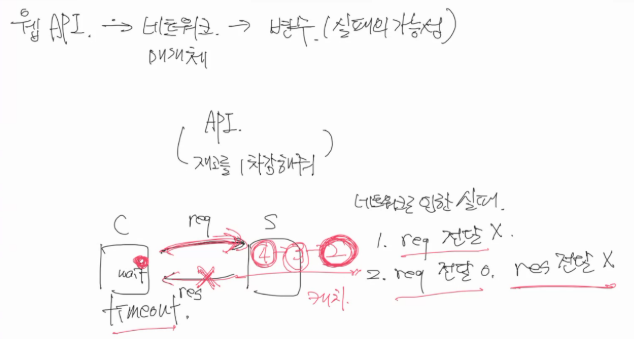 웹 API. → 네트워크. → 변수. (실패의 가능성)
매개체
API.
( 재고를 1차감해줘 )
네트워크로 인한 실패.
C req S
1. req 전달 X.
wait ④ ③ ②
2. req 전달 O. res 전달 X
res
timeout.